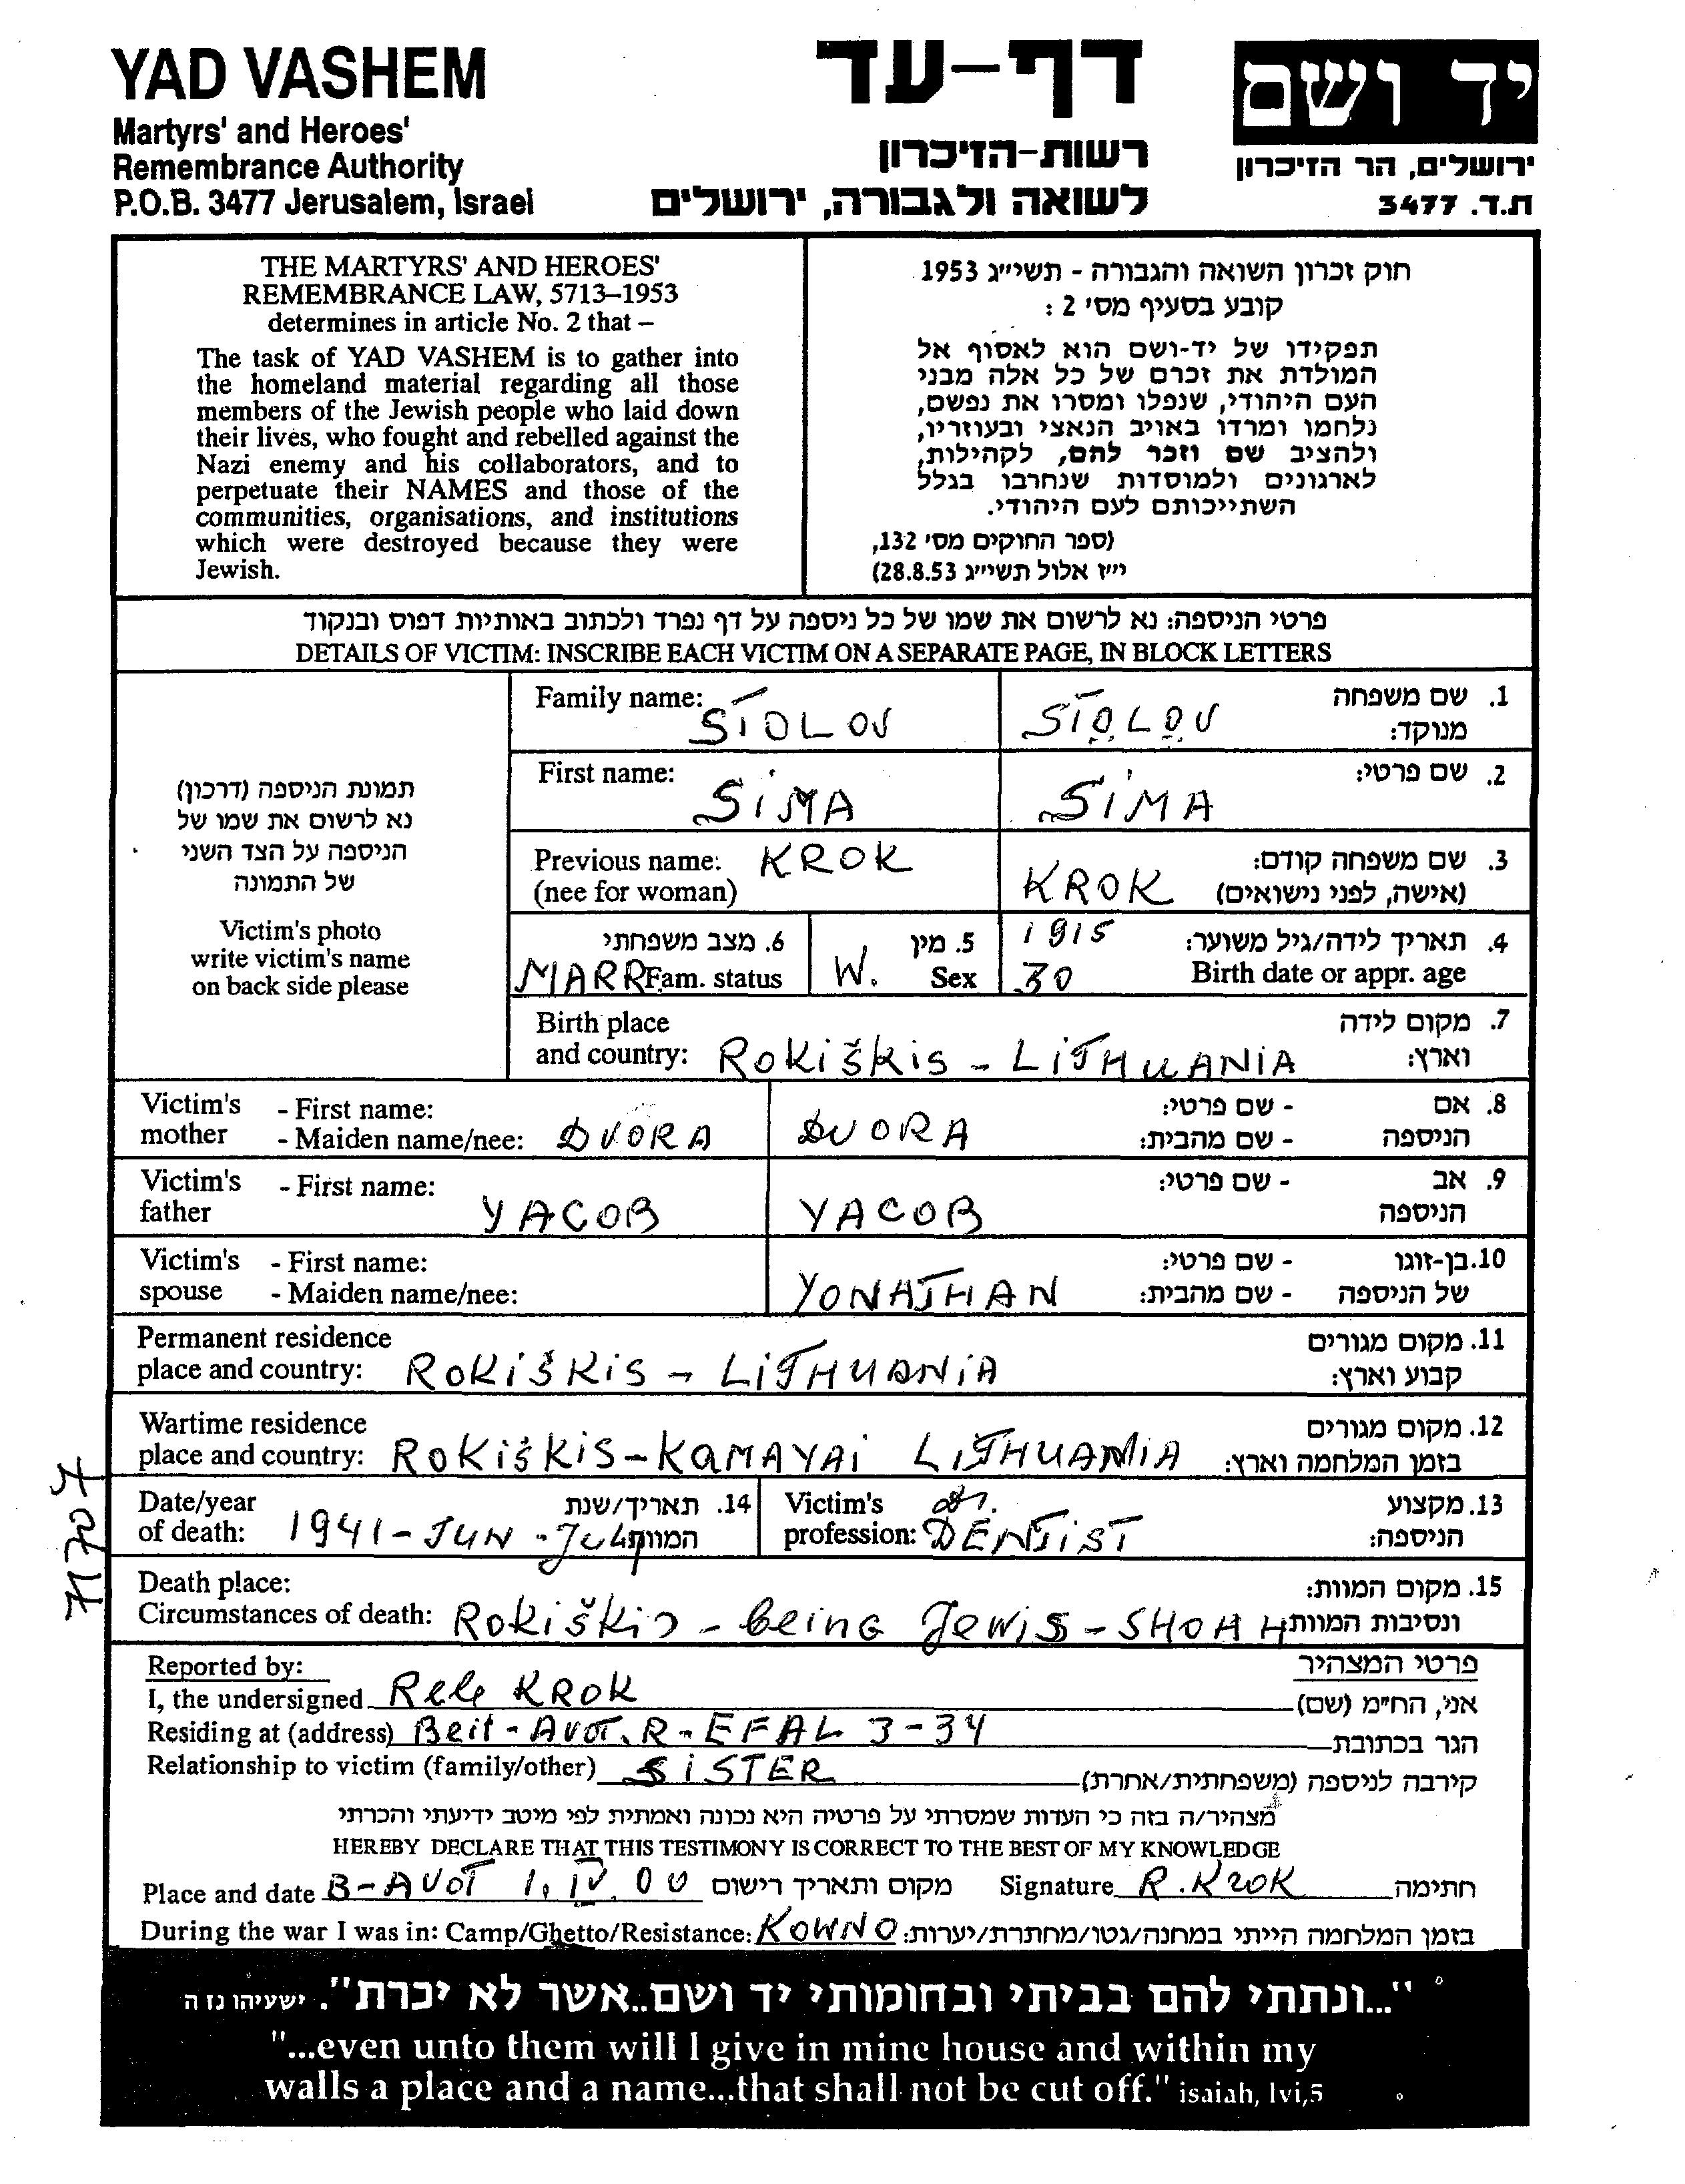 YAD VASHEM
Martyrs' and Heroes'
Remembrance Authority
P.O.B. 3477 Jerusalem, Israel
דף-עד
רשות-הזיכרון
לשואה ולגבורה, ירושלים
יד ושם
ירושלים, הר הזיכרון
ת.ד. 3477
THE MARTYRS' AND HEROES'
REMEMBRANCE LAW, 5713–1953
determines in article No. 2 that –
The task of YAD VASHEM is to gather into
the homeland material regarding all those
members of the Jewish people who laid down
their lives, who fought and rebelled against the
Nazi enemy and his collaborators, and to
perpetuate their NAMES and those of the
communities, organisations, and institutions
which were destroyed because they were
Jewish.
חוק זכרון השואה והגבורה - תשי״ג 1953
קובע בסעיף מס׳ 2 :
תפקידו של יד-ושם הוא לאסוף אל
המולדת את זכרם של כל אלה מבני
העם היהודי, שנפלו ומסרו את נפשם,
נלחמו ומרדו באויב הנאצי ובעוזריו,
ולהציב שם וזכר להם, לקהילות,
לארגונים ולמוסדות שנחרבו בגלל
השתייכותם לעם היהודי.
(ספר החוקים מס׳ 132,
י״ז אלול תשי״ג 28.8.53)
פרטי הניספה: נא לרשום את שמו של כל ניספה על דף נפרד ולכתוב באותיות דפוס ובנקוד
DETAILS OF VICTIM: INSCRIBE EACH VICTIM ON A SEPARATE PAGE, IN BLOCK LETTERS
תמונת הניספה (דרכון)
נא לרשום את שמו של
הניספה על הצד השני
של התמונה
Victim's photo
write victim's name
on back side please
Family name: STOLOV STOLOV 1. שם משפחה
מנוקד:
First name: SIMA SIMA 2. שם פרטי:
Previous name: KROK KROK 3. שם משפחה קודם:
(nee for woman) (אישה, לפני נישואים)
6. מצב משפחתי 5. מין 1915 4. תאריך לידה/גיל משוער:
MARR Fam. status W. Sex 30 Birth date or appr. age
Birth place 7. מקום לידה
and country: ROKIŠKIS - LITHUANIA וארץ:
Victim's - First name: - שם פרטי: 8. אם
mother - Maiden name/nee: DVORA DVORA - שם מהבית: הניספה
Victim's - First name: - שם פרטי: 9. אב
father YACOB YACOB הניספה
Victim's - First name: - שם פרטי: 10. בן-זוגו
spouse - Maiden name/nee: YONATHAN - שם מהבית: של הניספה
Permanent residence 11. מקום מגורים
place and country: ROKIŠKIS - LITHUANIA קבוע וארץ:
Wartime residence 12. מקום מגורים
place and country: ROKIŠKIS-KAMAYAI LITHUANIA בזמן המלחמה וארץ:
Date/year 14. תאריך/שנת Victim's 13. מקצוע
of death: 1941 - JUN - July המוות: profession: DENTIST הניספה:
Death place: 15. מקום המוות:
Circumstances of death: Rokiškis - being Jewis - SHOAH ונסיבות המוות:
71707
Reported by: פרטי המצהיר
I, the undersigned Rele KROK אני, הח״מ (שם)
Residing at (address) Beit - AVOT. R - EFAL 3-34 הגר בכתובת
Relationship to victim (family/other) SISTER קירבה לניספה (משפחתית/אחרת)
מצהיר/ה בזה כי העדות שמסרתי על פרטיה היא נכונה ואמתית לפי מיטב ידיעתי והכרתי
HEREBY DECLARE THAT THIS TESTIMONY IS CORRECT TO THE BEST OF MY KNOWLEDGE
Place and date B-AVOT 1. IV. 00 מקום ותאריך רישום Signature R. KROK חתימה
During the war I was in: Camp/Ghetto/Resistance: KOWNO בזמן המלחמה הייתי במחנה/גטו/מחתרת/יערות:
"...ונתתי להם בביתי ובחומותי יד ושם..אשר לא יכרת". ישעיהו נו ה
"...even unto them will I give in mine house and within my
walls a place and a name...that shall not be cut off." isaiah, lvi,5